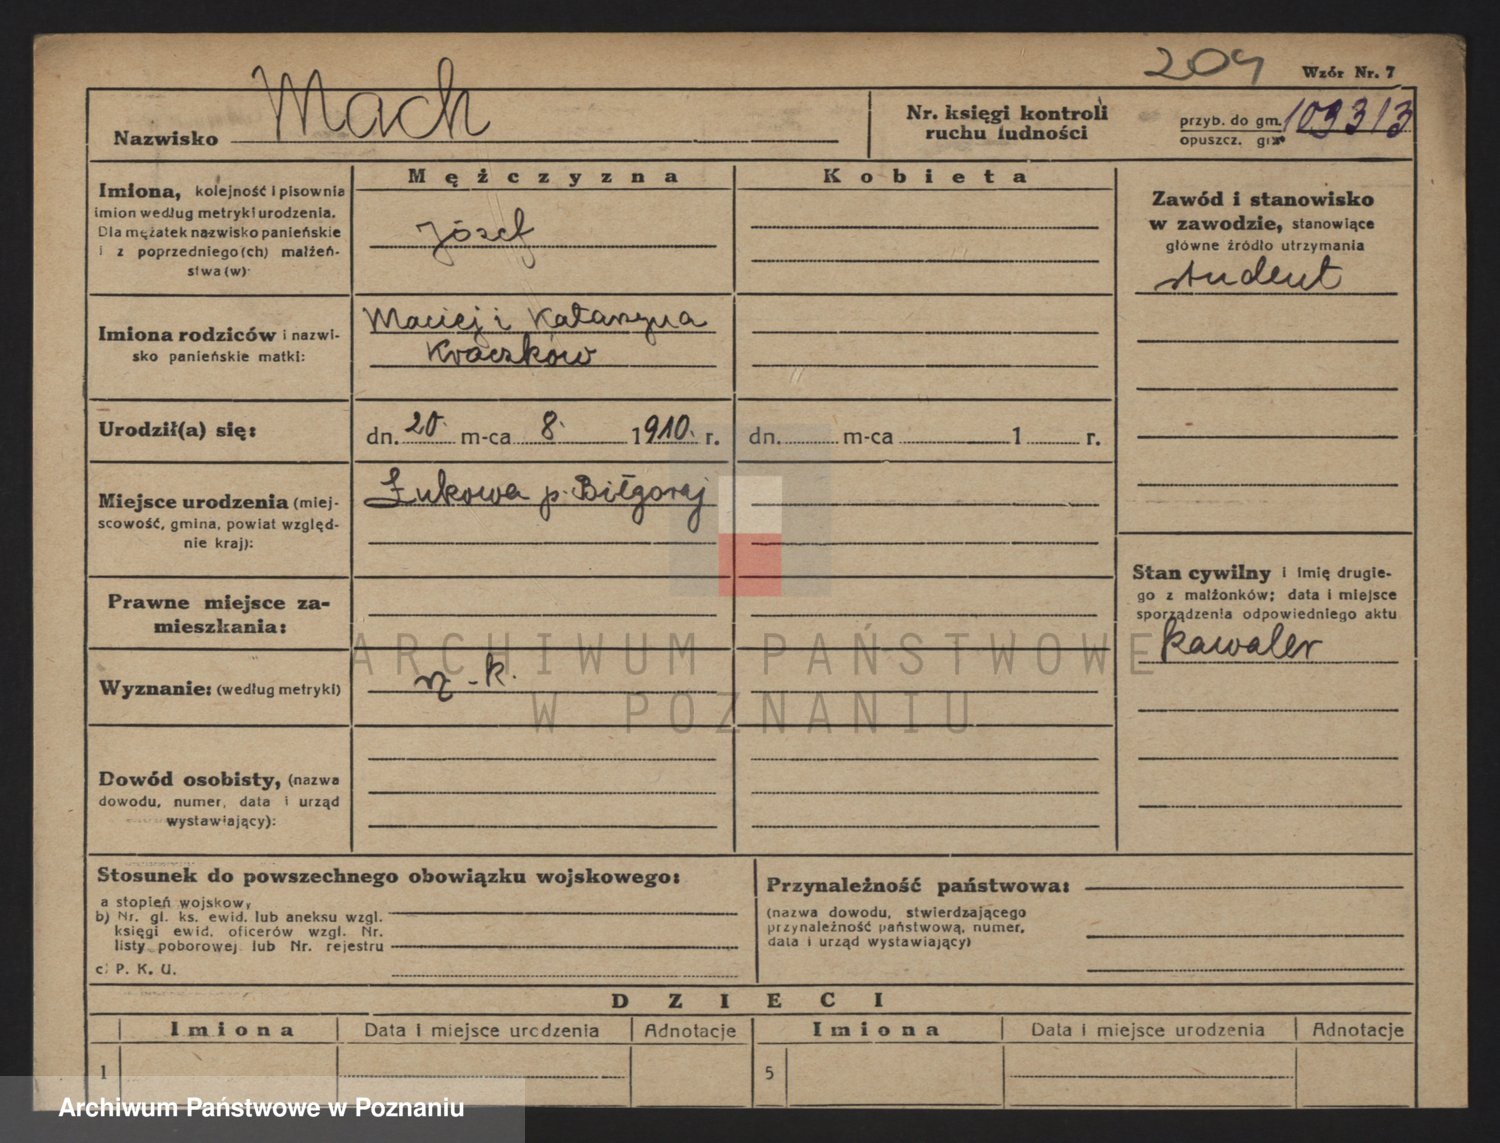 204
Wzór Nr. 7
Nazwisko Mach
Nr. księgi kontroli
ruchu ludności
przyb. do gm. 109313
opuszcz. gm.
Imiona, kolejność i pisownia
imion według metryki urodzenia.
Dla mężatek nazwisko panieńskie
i z poprzedniego(ch) małżeń-
stwa(w)
Mężczyzna
Józef
Kobieta
Zawód i stanowisko
w zawodzie, stanowiące
główne źródło utrzymania
student
Imiona rodziców i nazwi-
sko panieńskie matki:
Maciej i Katarzyna
Kraczków
Urodził(a) się:
dn. 20. m-ca 8. 1910. r.
dn. m-ca 1 r.
Miejsce urodzenia (miej-
scowość, gmina, powiat względ-
nie kraj):
Łukowa p. Biłgoraj
Prawne miejsce za-
mieszkania:
Stan cywilny i imię drugie-
go z małżonków; data i miejsce
sporządzenia odpowiedniego aktu
kawaler
Wyznanie: (według metryki)
rz-k.
ARCHIWUM PAŃSTWOWE
W POZNANIU
Dowód osobisty, (nazwa
dowodu, numer, data i urząd
wystawiający):
Stosunek do powszechnego obowiązku wojskowego:
a stopień wojskowy
b) Nr. gł. ks. ewid. lub aneksu wzgl.
księgi ewid. oficerów wzgl. Nr.
listy poborowej lub Nr. rejestru
c) P. K. U.
Przynależność państwowa:
(nazwa dowodu, stwierdzającego
przynależność państwową, numer,
data i urząd wystawiający)
DZIECI
Imiona Data i miejsce urodzenia Adnotacje Imiona Data i miejsce urodzenia Adnotacje
1 5
Archiwum Państwowe w Poznaniu